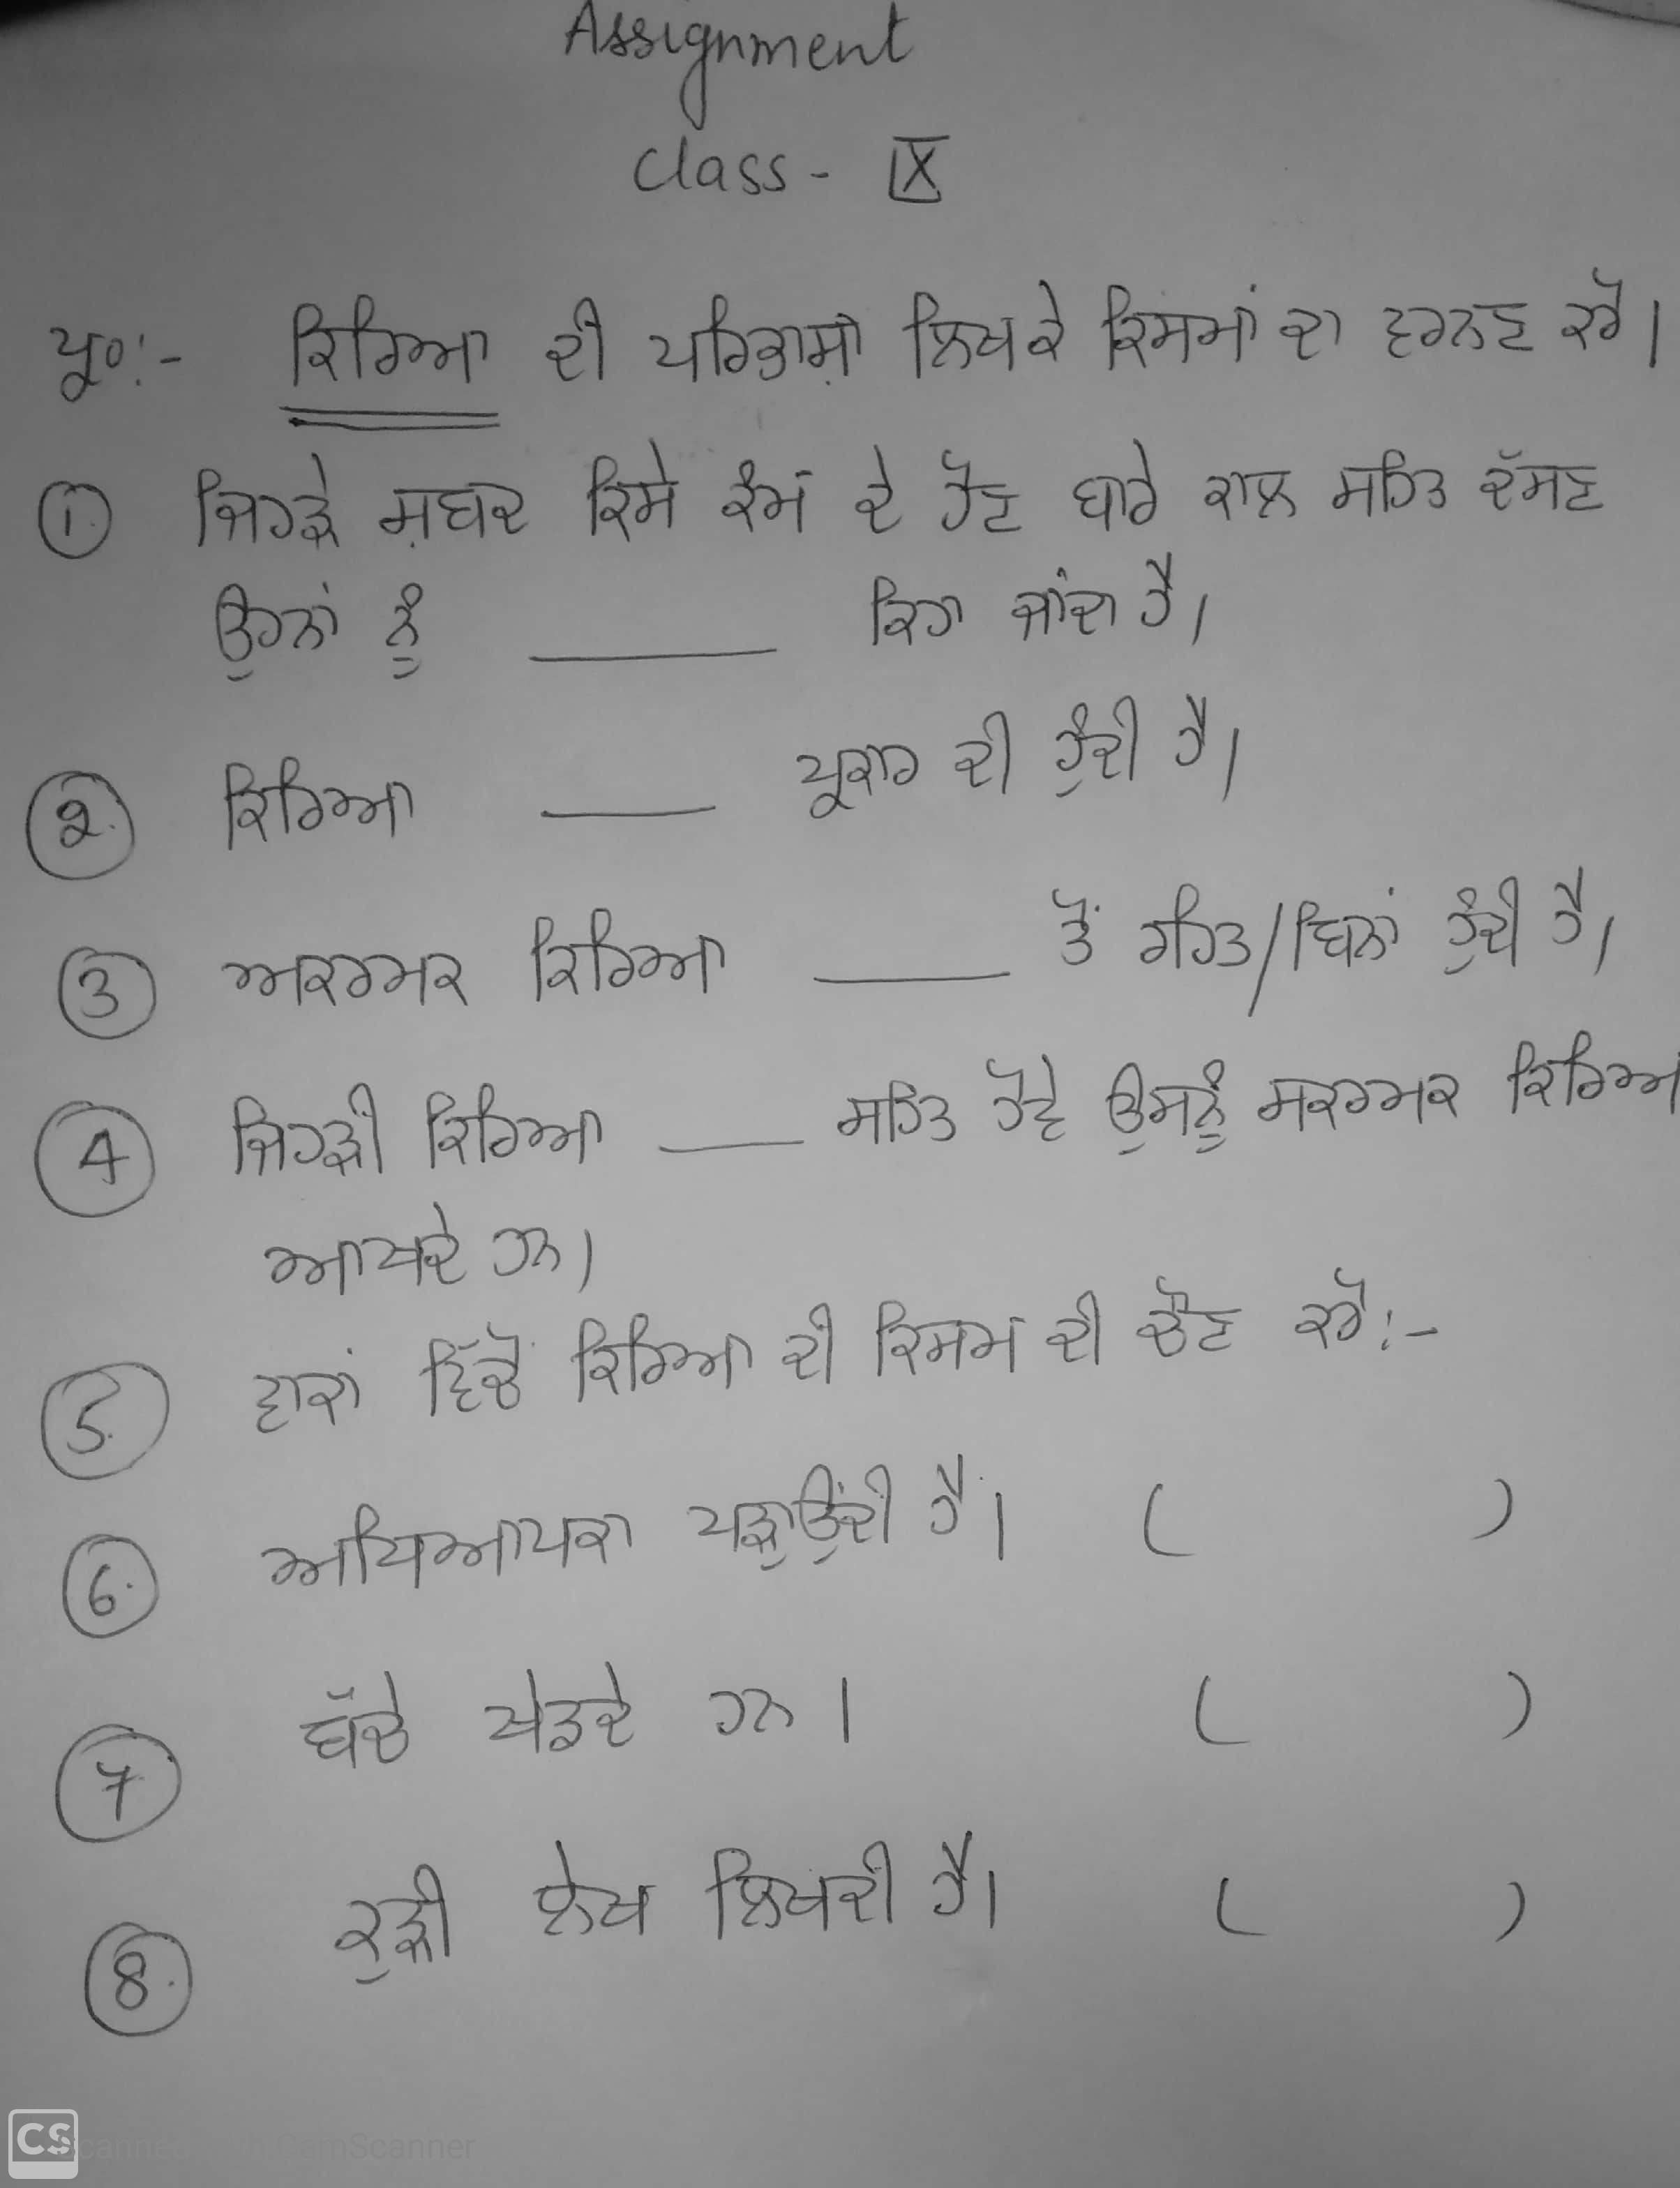 Assignment
Class - IX
ਪ੍ਰ੦:- ਕਿਰਿਆ ਦੀ ਪਰਿਭਾਸ਼ਾ ਲਿਖਕੇ ਕਿਸਮਾਂ ਦਾ ਵਰਨਣ ਕਰੋ।
① ਜਿਹੜੇ ਸ਼ਬਦ ਕਿਸੇ ਕੰਮ ਦੇ ਹੋਣ ਬਾਰੇ ਕਾਲ ਸਹਿਤ ਦੱਸਣ
ਉਹਨਾਂ ਨੂੰ ______ ਕਿਹਾ ਜਾਂਦਾ ਹੈ।
② ਕਿਰਿਆ ____ ਪ੍ਰਕਾਰ ਦੀ ਹੁੰਦੀ ਹੈ।
③ ਅਕਰਮਕ ਕਿਰਿਆ ____ ਤੋਂ ਰਹਿਤ/ਬਿਨਾਂ ਹੁੰਦੀ ਹੈ।
④ ਜਿਹੜੀ ਕਿਰਿਆ ___ ਸਹਿਤ ਹੋਵੇ ਉਸਨੂੰ ਸਕਰਮਕ ਕਿਰਿਆ
ਆਖਦੇ ਹਨ।
⑤ ਵਾਕਾਂ ਵਿੱਚੋਂ ਕਿਰਿਆ ਦੀ ਕਿਸਮ ਦੀ ਚੋਣ ਕਰੋ:-
⑥ ਅਧਿਆਪਕਾ ਪੜ੍ਹਾਉਂਦੀ ਹੈ। ( )
⑦ ਬੱਚੇ ਖੇਡਦੇ ਹਨ। ( )
⑧ ਕੁੜੀ ਲੇਖ ਲਿਖਦੀ ਹੈ। ( )
CS Scanned with CamScanner